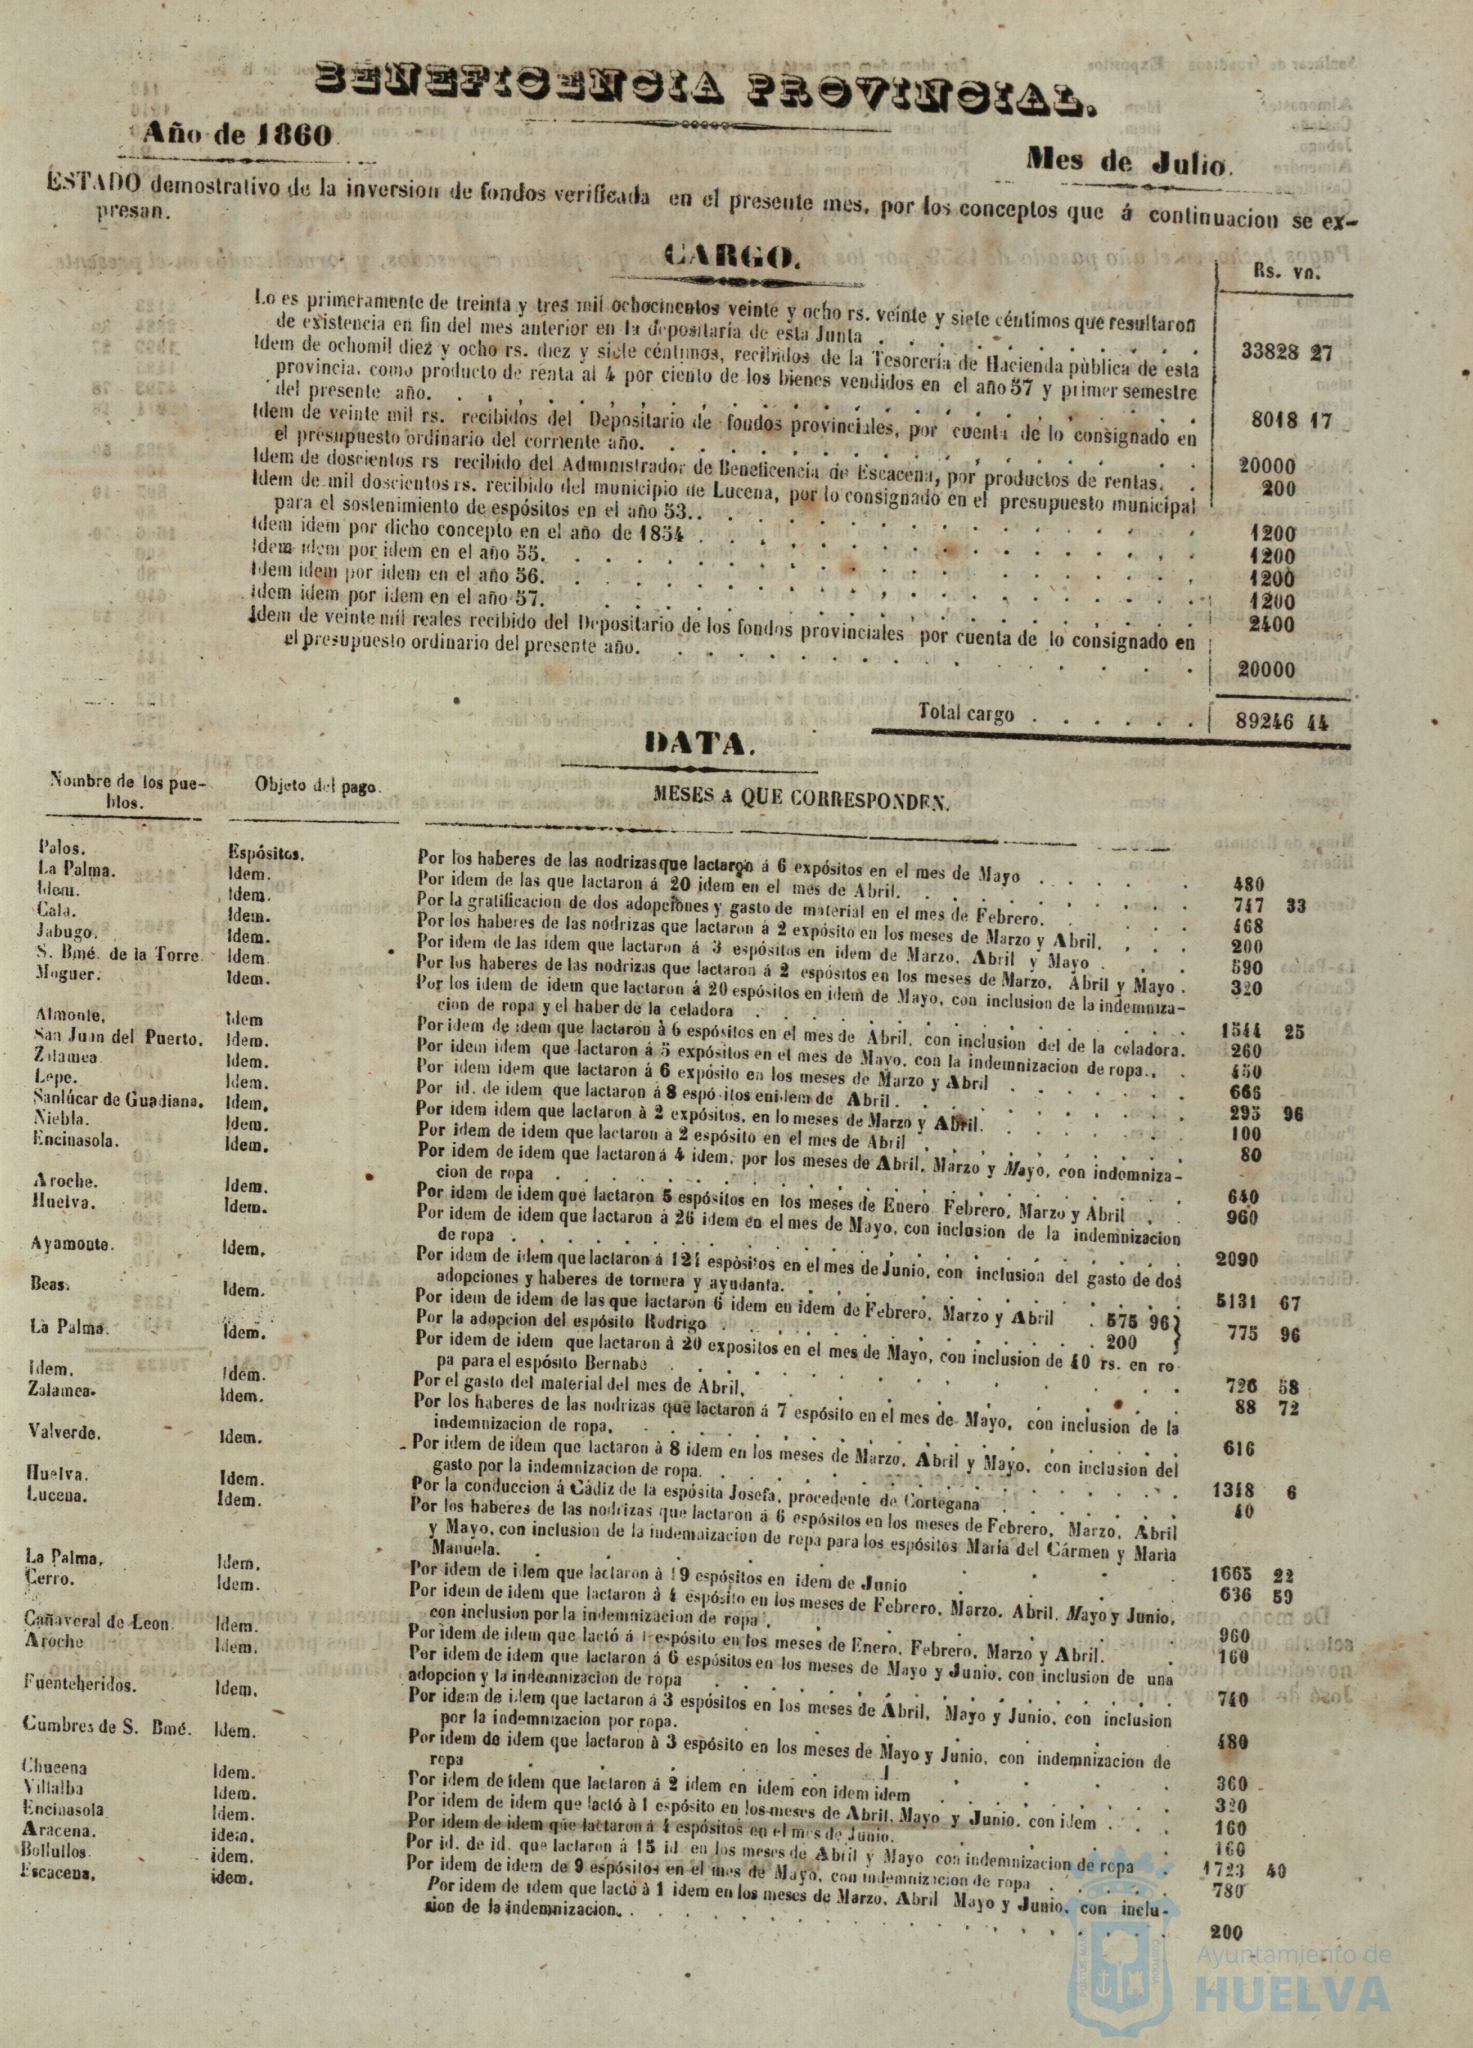 BENEFICENCIA PROVINCIAL.
Año de 1860
Mes de Julio.
ESTADO demostrativo de la inversion de fondos verificada en el presente mes, por los conceptos que á continuacion se ex-
presan.
CARGO.
Rs. vn.
Lo es primeramente de treinta y tres mil ochocinentos veinte y ocho rs. veinte y siete céntimos que resultaron
de existencia en fin del mes anterior en la depositaría de esta Junta . . . . . . . 33828 27
Idem de ochomil diez y ocho rs. diez y siete céntimos, recibidos de la Tesorería de Hacienda pública de esta
provincia, como producto de renta al 4 por ciento de los bienes vendidos en el año 57 y primer semestre
del presente año. . . . . . . . . 8018 17
Idem de veinte mil rs. recibidos del Depositario de fondos provinciales, por cuenta de lo consignado en
el presupuesto ordinario del corriente año. . . . . . . . 20000
Idem de doscientos rs recibido del Administrador de Beneficencia de Escacena, por productos de rentas. . 200
Idem de mil doscientos rs. recibido del municipio de Lucena, por lo consignado en el presupuesto municipal
para el sostenimiento de espósitos en el año 53. . . . . . . 1200
Idem idem por dicho concepto en el año de 1854 . . . . . . . 1200
Idem idem por idem en el año 55. . . . . . . 1200
Idem idem por idem en el año 56. . . . . . . 1200
Idem idem por idem en el año 57. . . . . . . 2400
Idem de veinte mil reales recibido del Depositario de los fondos provinciales por cuenta de lo consignado en
el presupuesto ordinario del presente año. . . . . . . 20000
Total cargo . . . . . . 89246 44
DATA.
Nombre de los pue-
blos.
Objeto del pago.
MESES A QUE CORRESPONDEN.
Palos. Espósitos. Por los haberes de las nodrizas que lactaron á 6 expósitos en el mes de Mayo . . . . 480
La Palma. Idem. Por idem de las que lactaron á 20 idem en el mes de Abril. . . . . 747 33
Idem. Idem. Por la gratificacion de dos adopciones y gasto de material en el mes de Febrero. . . . 468
Cala. Idem. Por los haberes de las nodrizas que lactaron á 2 expósito en los meses de Marzo y Abril. . . . 200
Jabugo. Idem. Por idem de las idem que lactaron á 3 espósitos en idem de Marzo, Abril y Mayo . . . 590
S. Bmé. de la Torre Idem. Por los haberes de las nodrizas que lactaron á 2 espósitos en los meses de Marzo, Abril y Mayo . 320
Moguer. Idem. Por los idem de idem que lactaron á 20 espósitos en idem de Mayo, con inclusion de la indemniza-
cion de ropa y el haber de la celadora . . . . . . 1544 25
Almonte. Idem Por idem de idem que lactaron à 6 espósitos en el mes de Abril, con inclusion del de la celadora. 260
San Juan del Puerto. Idem. Por idem idem que lactaron á 5 expósitos en el mes de Mayo, con la indemnizacion de ropa. . 450
Zalamea Idem. Por idem idem que lactaron á 6 expósito en los meses de Marzo y Abril . . . . 666
Lepe. Idem. Por id. de idem que lactaron á 8 espósitos en idem de Abril . . . . . 295 96
Sanlúcar de Guadiana. Idem. Por idem idem que lactaron à 2 expósitos, en lo meses de Marzo y Abril. . . . . 100
Niebla. Idem. Por idem de idem que lactaron á 2 espósito en el mes de Abril . . . . 80
Encinasola. Idem. Por idem de idem que lactaron á 4 idem, por los meses de Abril, Marzo y Mayo, con indemniza-
cion de ropa . . . . . . . 640
Aroche. Idem. Por idem de idem que lactaron 5 espósitos en los meses de Enero Febrero, Marzo y Abril . . 960
Huelva. Idem. Por idem de idem que lactaron á 26 idem en el mes de Mayo, con inclusion de la indemnizacion
de ropa . . . . . . . 2090
Ayamonte. Idem. Por idem de idem que lactaron á 121 espósitos en el mes de Junio, con inclusion del gasto de dos
adopciones y haberes de tornera y ayudanta. . . . . . 5131 67
Beas. Idem. Por idem de idem de las que lactaron 6 idem en idem de Febrero, Marzo y Abril . 575 96
Por la adopcion del espósito Rodrigo . . . . . 200 } 775 96
La Palma. Idem. Por idem de idem que lactaron á 20 expositos en el mes de Mayo, con inclusion de 40 rs. en ro-
pa para el espósito Bernabe . . . . . . 726 58
Idem. Idem. Por el gasto del material del mes de Abril. . . . . . 88 72
Zalamea. Idem. Por los haberes de las nodrizas que lactaron á 7 espósito en el mes de Mayo, con inclusion de la
indemnizacion de ropa. . . . . . . 616
Valverde. Idem. Por idem de idem que lactaron à 8 idem en los meses de Marzo, Abril y Mayo, con inclusion del
gasto por la indemnizacion de ropa. . . . . . 1348 6
Huelva. Idem. Por la conduccion á Cádiz de la espósita Josefa, procedente de Cortegana . . . . . 40
Lucena. Idem. Por los haberes de las nodrizas que lactaron á 6 espósitos en los meses de Febrero, Marzo, Abril
y Mayo, con inclusion de la indemnizacion de ropa para los espósitos Maria del Cármen y Maria
Manuela. . . . . . . . 1665 22
La Palma. Idem. Por idem de idem que lactaron à 19 espósitos en idem de Junio . . . . 636 59
Cerro. Idem. Por idem de idem que lactaron à 4 espósito en los meses de Febrero, Marzo, Abril, Mayo y Junio,
con inclusion por la indemnizacion de ropa . . . . . . 960
Cañaveral de Leon Idem. Por idem de idem que lactó á 1 espósito en los meses de Enero, Febrero, Marzo y Abril. . . 160
Aroche Idem. Por idem de idem que lactaron á 6 espósitos en los meses de Mayo y Junio, con inclusion de una
adopcion y la indemnizacion de ropa . . . . . . 740
Fuenteheridos. Idem. Por idem de idem que lactaron á 3 espósitos en los meses de Abril, Mayo y Junio, con inclusion
por la indemnizacion por ropa. . . . . . 480
Cumbres de S. Bmé. Idem. Por idem de idem que lactaron à 3 expósito en los meses de Mayo y Junio, con indemnizacion de
ropa . . . . . . . 360
Chucena Idem. Por idem de idem que lactaron á 2 idem en idem con idem idem . . . . 320
Villalba Idem. Por idem de idem que lactó à 1 espósito en los meses de Abril, Mayo y Junio, con idem . . . 160
Encinasola Idem. Por idem de idem que lactaron á 4 espósitos en el mes de Junio. . . . . 160
Aracena. idem. Por id. de id. que lactaron á 15 id en los meses de Abril y Mayo con indemnizacion de ropa . 1723 40
Bollullos idem. Por idem de idem de 9 espósitos en el mes de Mayo, con indemnizacion de ropa . . . . 780
Escacena. idem. Por idem de idem que lactó à 1 idem en los meses de Marzo, Abril Mayo y Junio, con inclu-
sion de la indemnizacion. . . . . . . 200
Ayuntamiento de
HUELVA